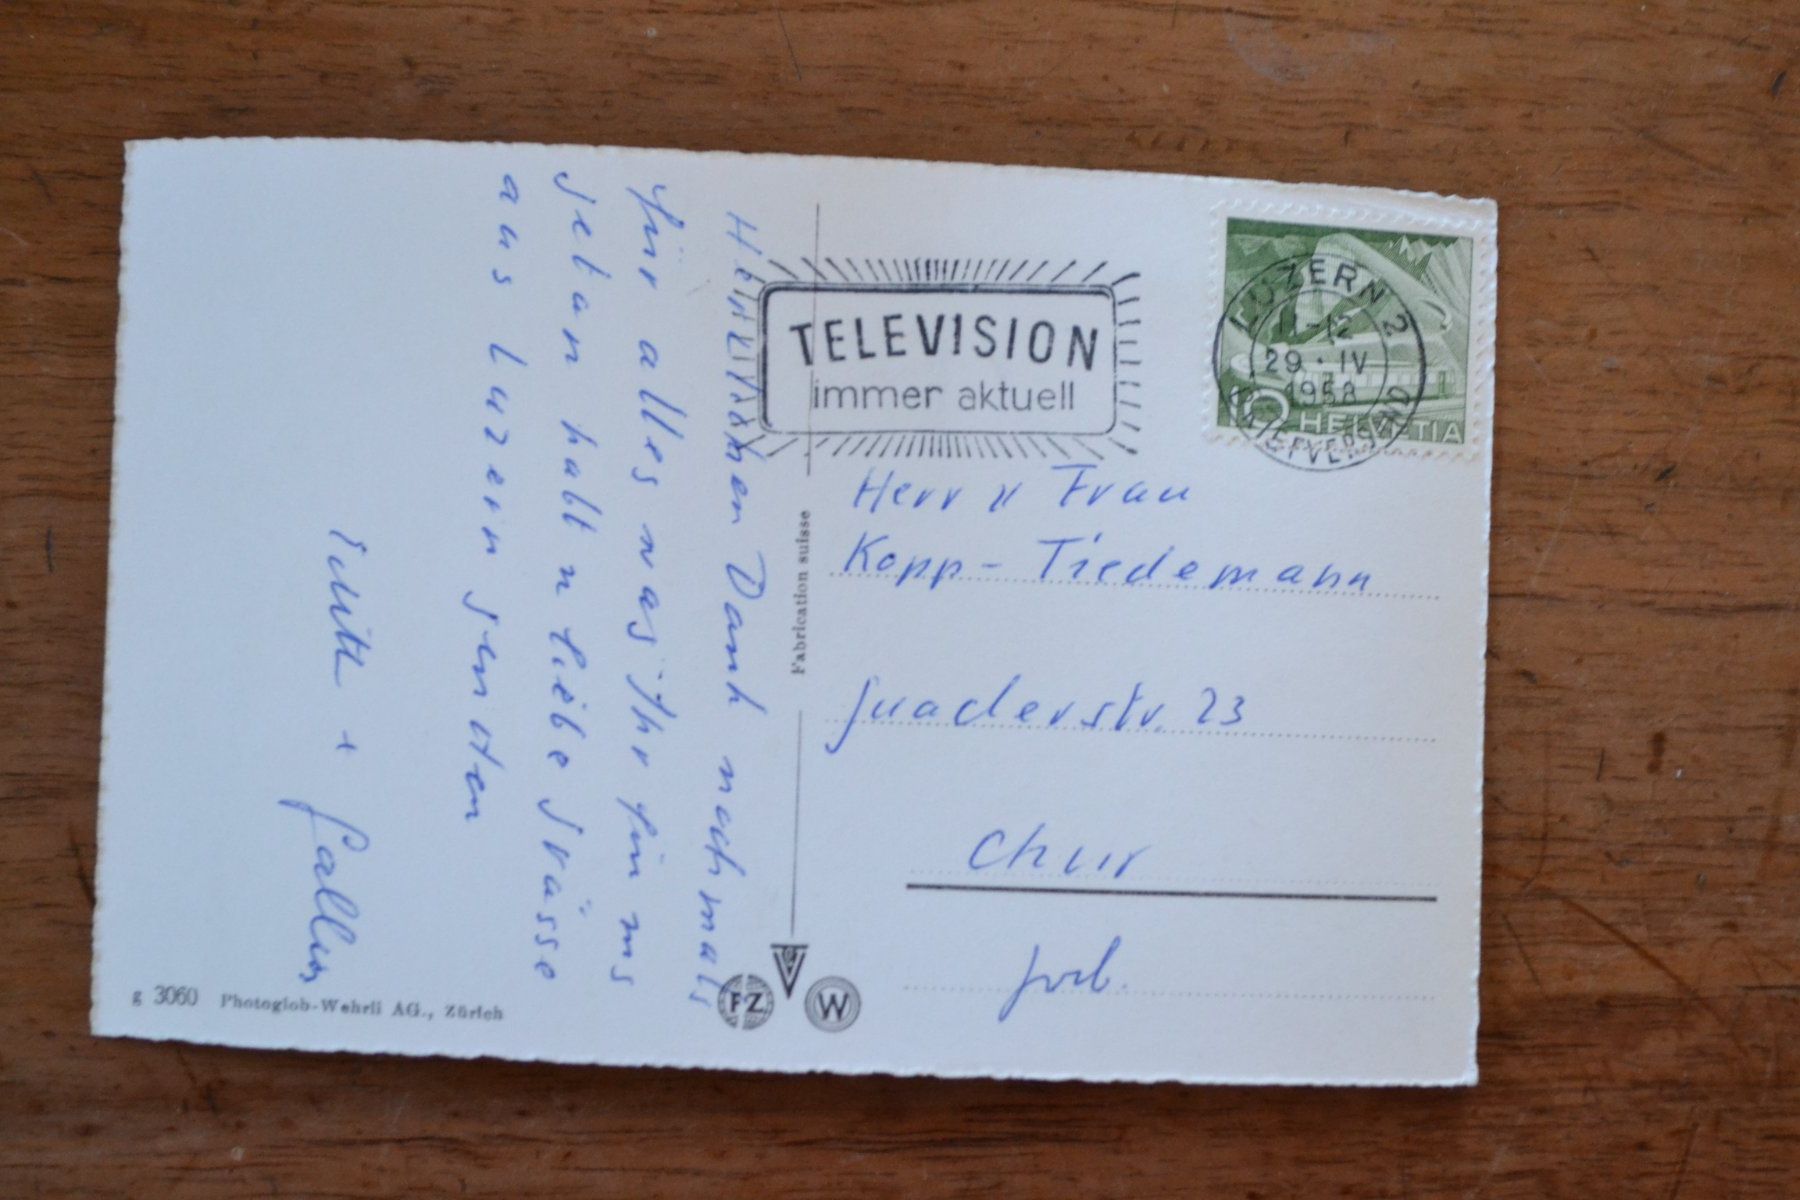 Herzlichen Dank nochmals
für alles was Ihr für uns
getan habt u liebe Grüsse
aus Luzern senden
Edith + Gallus
TELEVISION
immer aktuell
LUZERN 2
11-12
29·IV
1958
BRIEFVERSAND
5
HELVETIA
Fabrication suisse
Herr u Frau
Kopp-Tiedemann
Quaderstr. 23
Chur
g 3060 Photoglob-Wehrli AG., Zürich
PZ
W